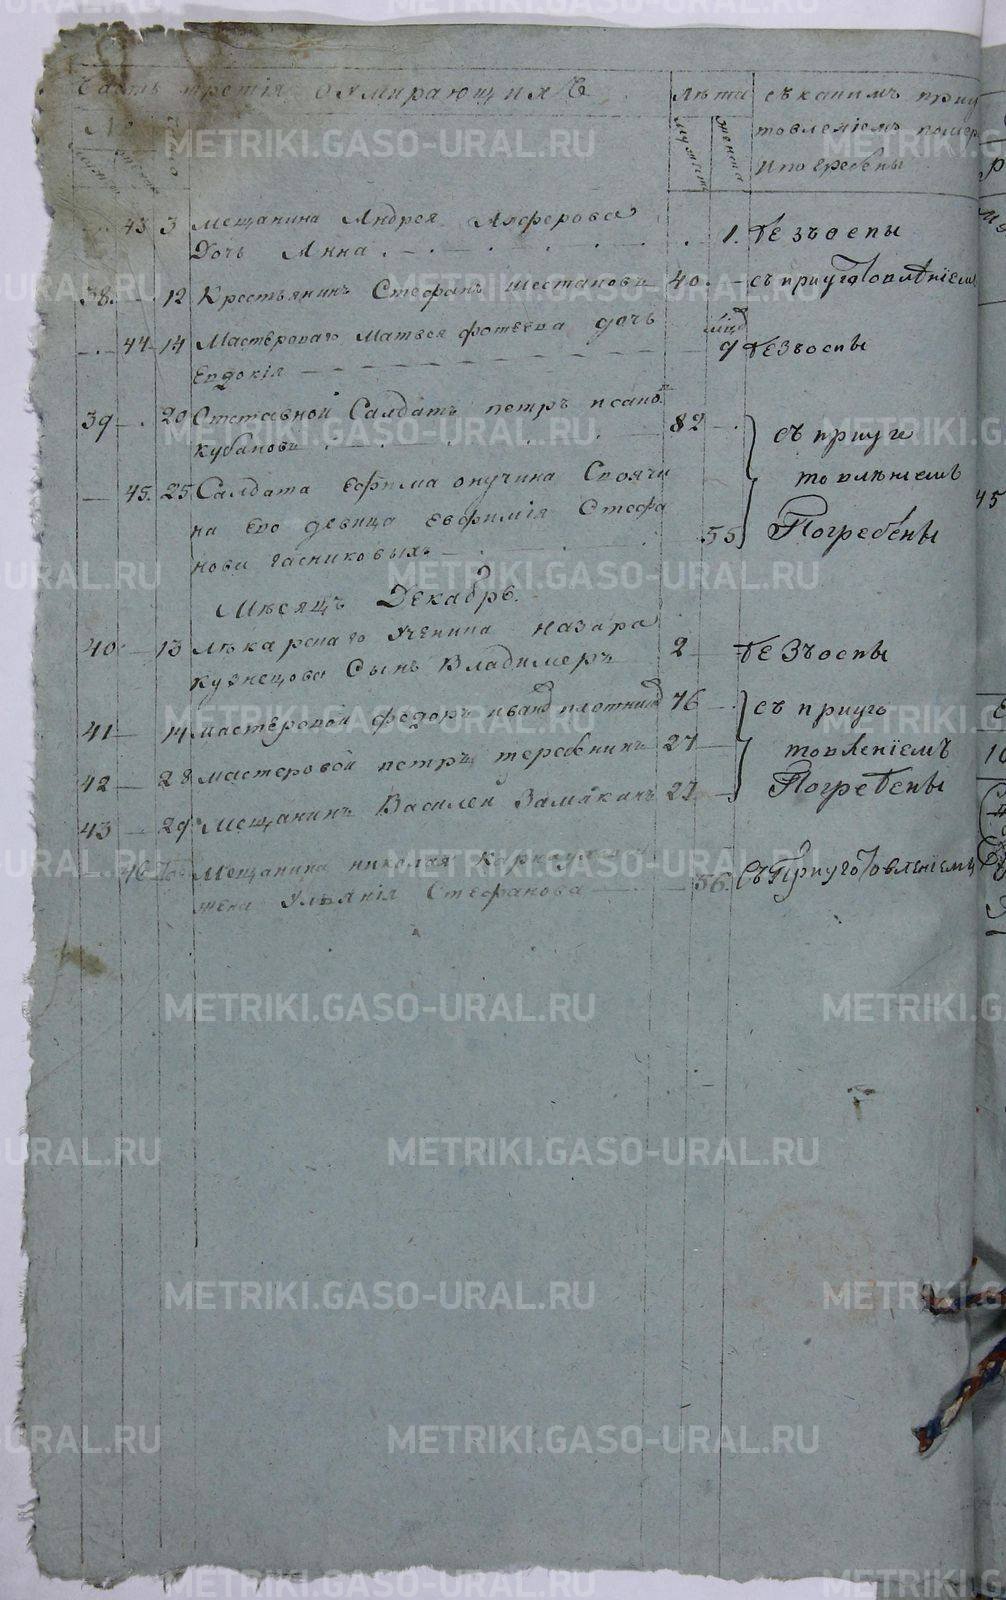 Часть третія оумирающихъ
лѣта
съ какимъ приу
товленіемъ помер
и погребены
мужеска
женска
43 3 Мещанина Андрея Алферова
Дочь Анна 1. без оспы
38. 12 Крестьянинъ Стефанъ Шестаковъ 40. съ приуготовлѣніем
44 14 Мастероваго Матвея фотеева дочь
Евдокія 9 без оспы
39 20 Отставной Салдатъ петръ
кубановъ 82
съ приуго
товлѣниемъ
Погребены
45. 25. Салдата Ефима онучина Своячи
на Его девица Евфимія Стефа
нова 55
Мѣсяцъ Декабрь.
40 13 Лѣкарскаго Ученика назара
кузнецова Сынъ Владимеръ 2 без оспы
41 14 мастеровой федоръ иванов плотников 76
съ приуго
товленіемъ
Погребены
42 28 мастеровой петръ теребнинъ 27
43 29 Мещанинъ Василей Замякинъ 27
46 Мещанина николая
жена Ульянія Стефанова 56. съ Приуготовленіемъ
45
METRIKI.GASO-URAL.RU